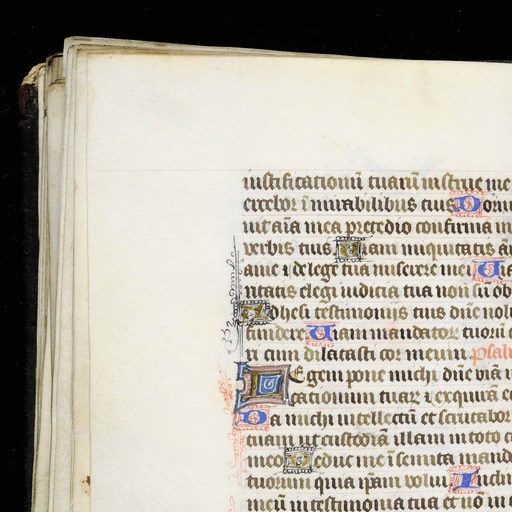 iustificationū tuarū instrue me
ercebor ī mirabilibus tuis Dormi
uit aīa mea pre tedio confirma m
verbis tuis Viam iniquitatis a
a me ⁊ de lege tua miserere mei Via
ritatis elegi iudicia tua non sū ob
Adhesi testimonijs tuis dn̄e noli
fundere Viam mandatorꝫ tuorū c
ri cum dilatasti cor meum. Psal
Legem pone michi dn̄e viā i
cationum tuarꝫ ⁊ exquirā e
Da michi intellectū et scrutabor
tuam et custodiā illam in toto c
meo Deduc me ī semita mand
tuorum quia ip̄am volui Inclin
meū in testimonia tua et nō in